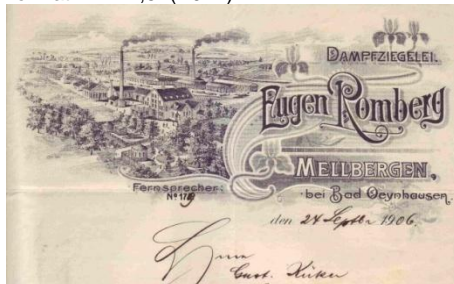 DAMPFZIEGELEI.
Eugen Romberg
MELLBERGEN,
bei Bad Oeynhausen,
Fernsprecher:
Nº 179
den 24 Septbr 1906.
Herrn
Gust.